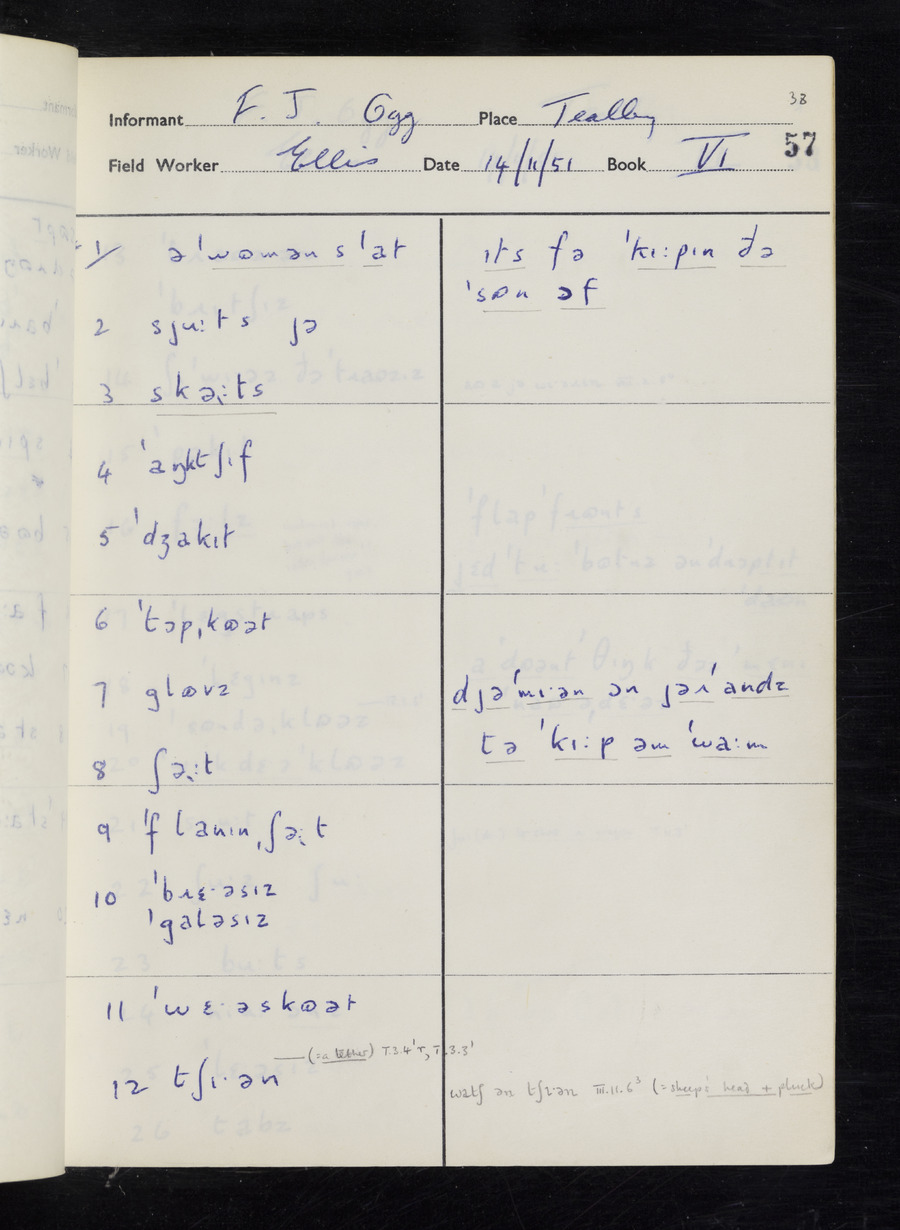 38
Informant F. J. Ogg Place Tealby
Field Worker Ellis Date 14/11/51 Book VI 57
1/ ə ˈwɒmən s ˈat
ɪts fə ˈkɪːpɪn ðə
ˈsɒn ɔf
2 sjuːts jə
3 skəːts
4 ˈaŋktʃɪf
5 ˈdʒakɪt
6 ˈtɔpˌkɒət
7 glɒvz
djəˈmɪən ɔn jəɹˈandz
tə ˈkɪːp əm ˈwaːm
8 ʃəːt
9 ˈflanɪnˌʃəːt
10 ˈbɹɛ·əsɪz
ˈgaləsɪz
11 ˈwɛ·əskɒət
(= a tether) T.3.4
12 tʃɪ·ən
watʃ ən tʃɪ·ən III.11.6³ (= sheep's head + pluck)